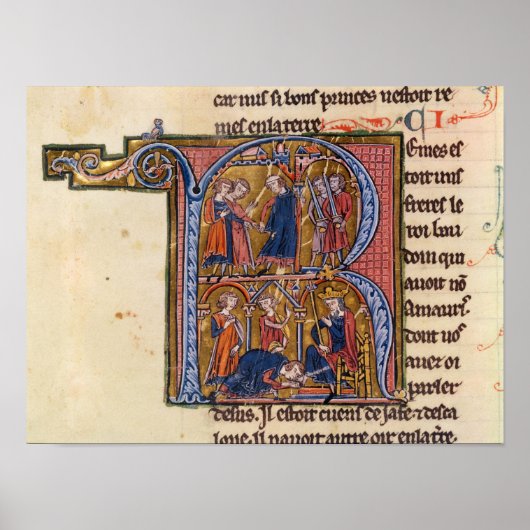 car nus si bons princes nestoit re
mes en la terre. CI
Remes es
toit uns
freres le
roi bau
doin qui
auoit nō
Amaurr.
dont uo᷒
auez oi
parler
desus. Il estoit cuens de Jafe ⁊ desca
lone. Il nauoit autre oir en la t̄re.